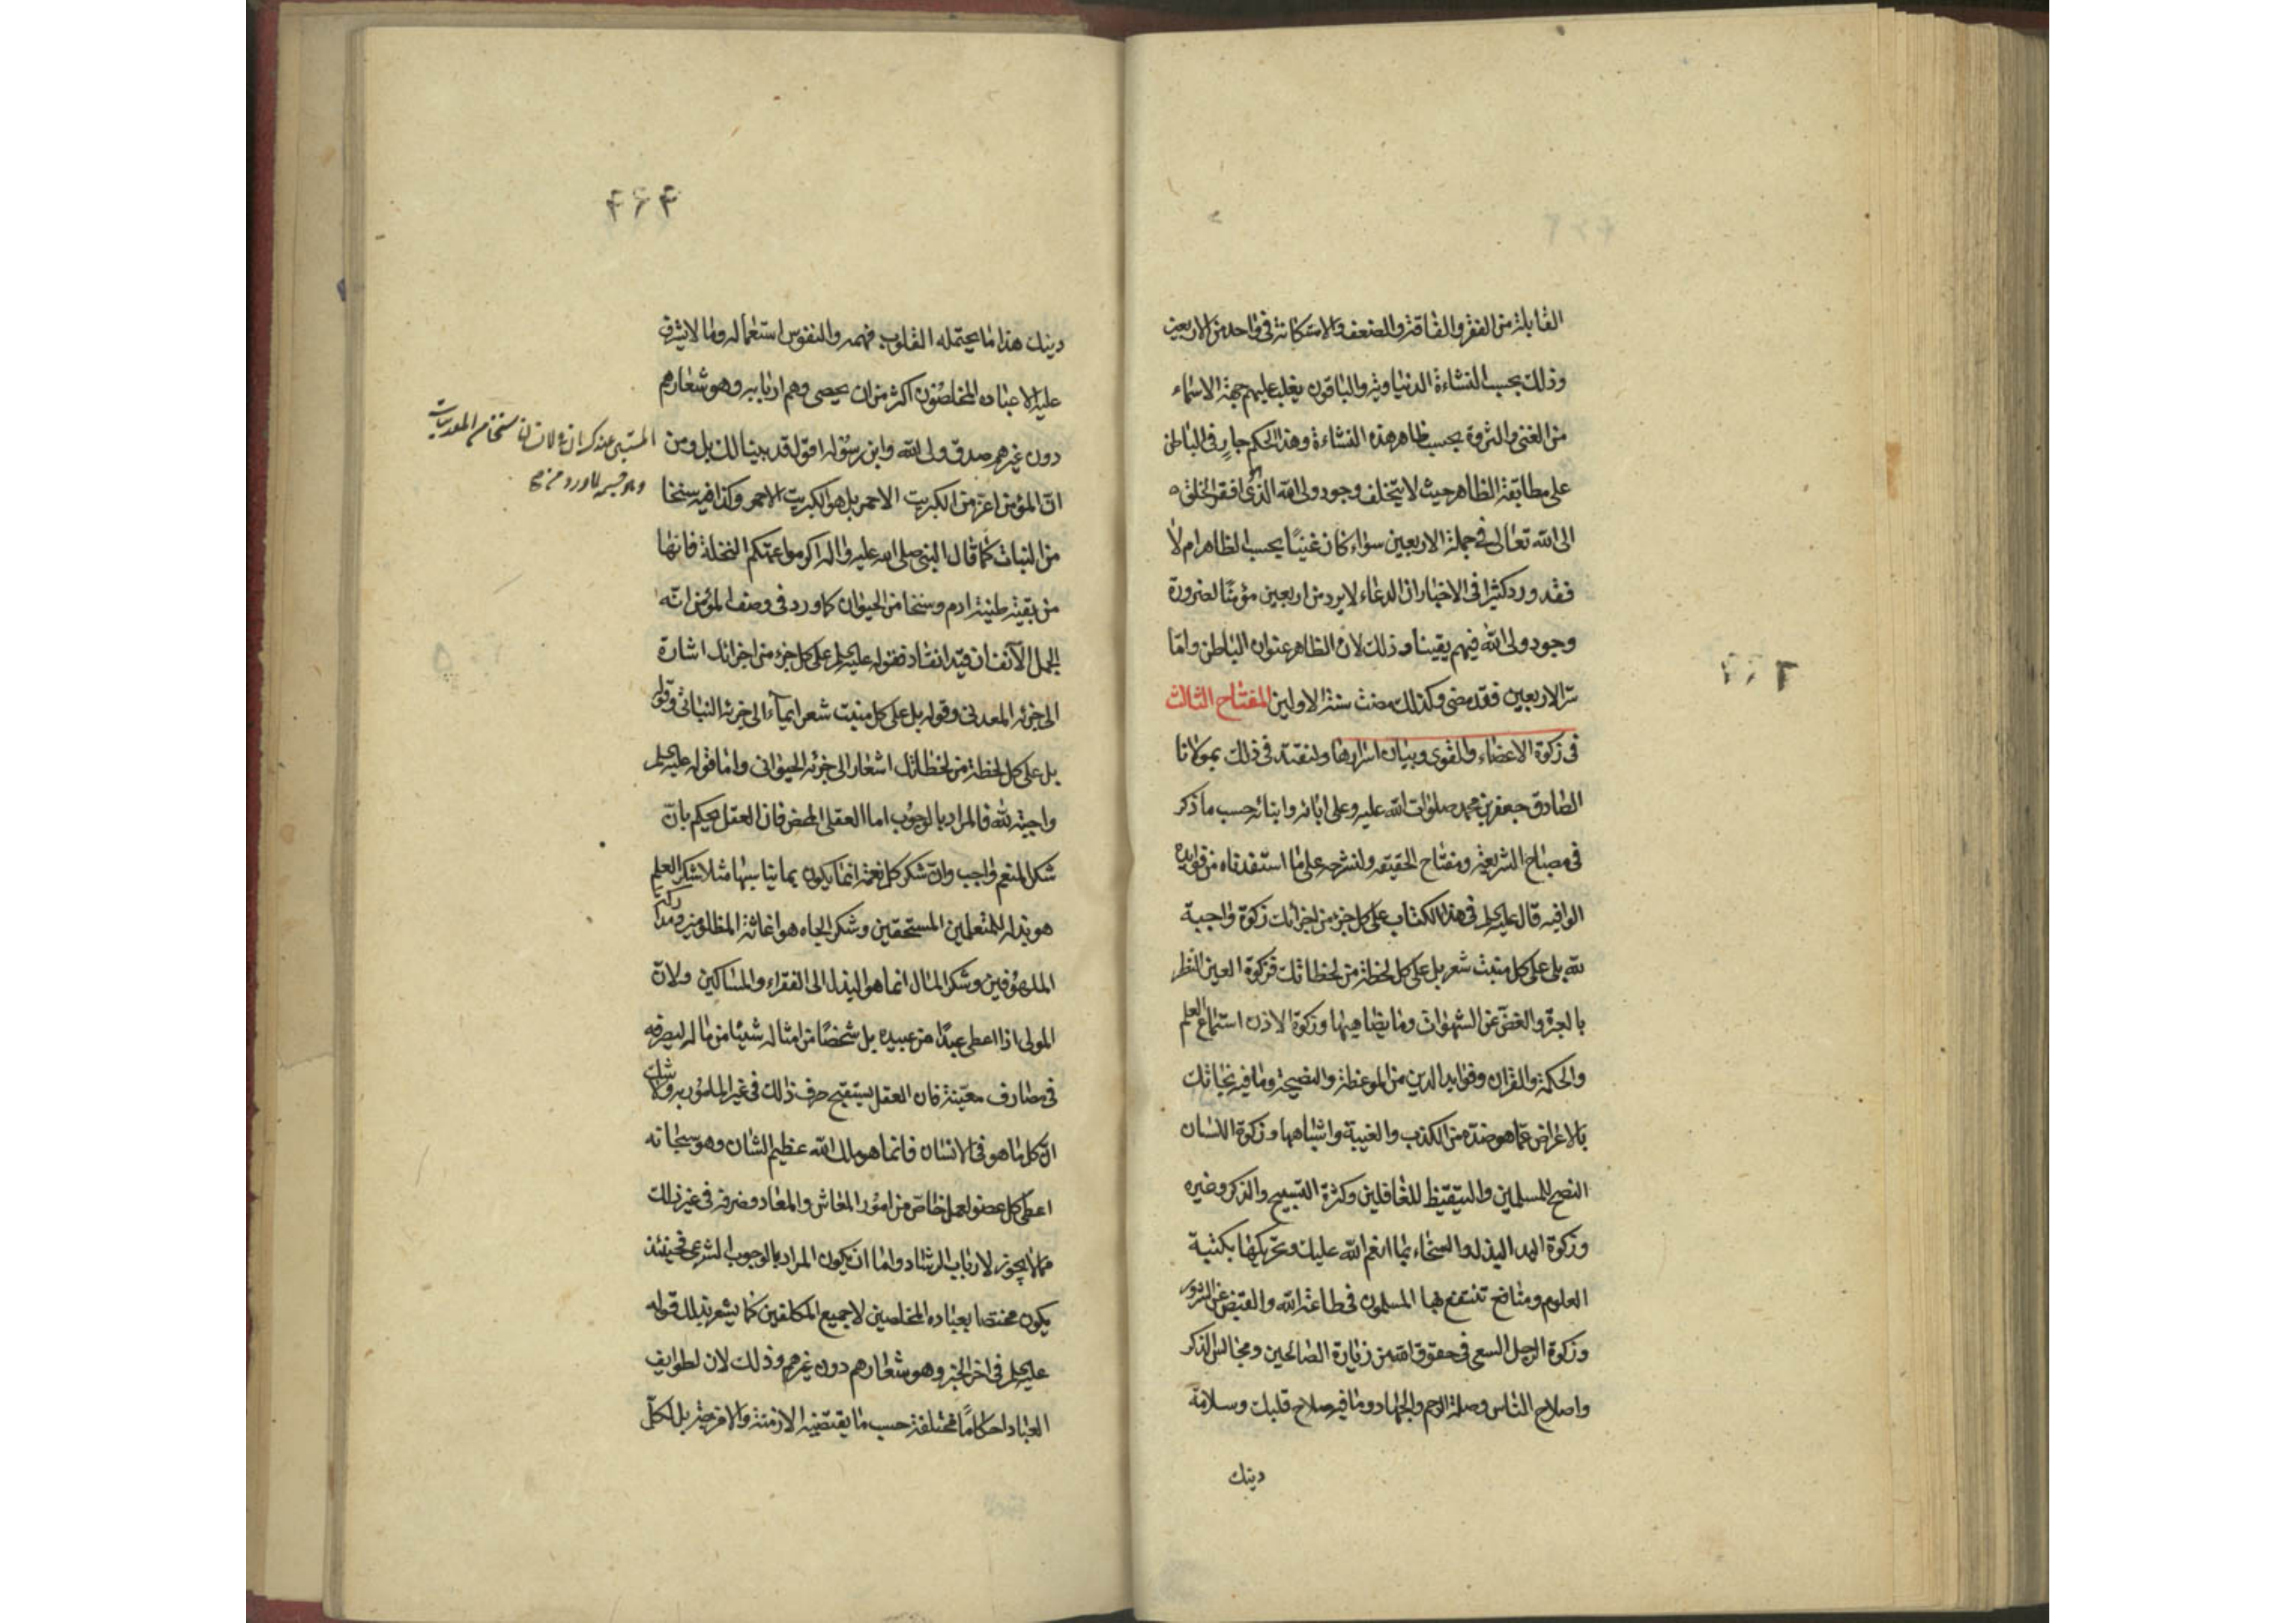 القابلة من الفقر والفاقة والضعف والاستكانة في واحد من الاربعين
وذلك بحسب النشاءة الدنياوية والباقون يغلب عليهم جهة الاسماء
من الغنى والثروة بحسب ظاهر هذه النشاءة وهذا الحكم جار في الباطن
على مطابقة الظاهر حيث لا يتخلف وجود ولي الله الذي افقر الخلق
الى الله تعالى في جملة الاربعين سواء كان غنيا بحسب الظاهر ام لا
فقد ورد كثيرا في الاخبار ان الدعاء لا يرد من اربعين مؤمنا لضرورة
وجود ولي الله فيهم يقينا وذلك لان الظاهر عنوان الباطن واما
سر الاربعين فقد مضى وكذلك مضت سنة الاولين المفتاح الثالث
في زكوة الاعضاء والقوى وبيان اسرارها ولنقتد في ذلك بمولانا
الصادق جعفر بن محمد صلوات الله عليه وعلى ابائه وابنائه حسب ما ذكر
في مصباح الشريعة ومفتاح الحقيقه ولنشرحه على ما استفدناه من فوايده
الوافيه قال عليه السلم في هذا الكتاب على كل جزء من اجزائك زكوة واجبة
لله بل على كل منبت شعر بل على كل لحظة من لحظاتك فزكوة العين النظر
بالعبرة والغض عن الشهوات وما يضاهيها وزكوة الاذن استماع العلم
والحكمة والقران وفوايد الدين من الموعظة والنصيحة وما فيه نجاتك
بالاعراض عما هو ضده من الكذب والغيبة واشباهها وزكوة اللسان
النصح للمسلمين والتيقيظ للغافلين وكثرة التسبيح والذكر وغيره
وزكوة اليد البذل والسخاء بما انعم الله عليك وتحريكها بكتبة
العلوم ومنافع تنتفع بها المسلمون في طاعة الله والقبض عن الشرور
وزكوة الرجل السعي في حقوق الله من زيارة الصالحين ومجالس الذكر
واصلاح الناس وصلة الرحم والجهاد وما فيه صلاح قلبك وسلامة
دينك
۴۶۴
دينك هذا ما يحتمله القلوب فهمه والنفوس استعماله وما لا يشرف
عليه الا عباده المخلصون اكثر من ان يحصى وهم اربابه وهو شعارهم
دون غيرهم صدق ولي الله وابن رسوله اقول قد بينا لك بل ومن
ان المؤمن اعز من الكبريت الاحمر بل هو الكبريت الاحمر وكذا فيه سنخا
من النبات كما قال النبي صلى الله عليه واله اكرموا عمتكم النخلة فانها
من بقية طينة ادم وسنخا من الحيوان كما ورد في وصف المؤمن انه
الجمل الآنف ان قيد انقاد فقوله عليه السلم على كل جزء من اجزائك اشارة
الى جزئه المعدني وقوله بل على كل منبت شعر ايماء الى جزئه النباتي وقوله
بل على كل لحظة من لحظاتك اشعار الى جزئه الحيواني واما قوله عليه السلم
واجبة لله فالمراد بالوجوب اما العقلي المحض فان العقل يحكم بان
شكر المنعم واجب وان شكر كل نعمة انما يكون بما يناسبها مثلا شكر العلم
هو بذله للمتعلمين المستحقين وشكر الجاه هو اغاثة المظلومين
الملهوفين وشكر المال انما هو البذل الى الفقراء والمساكين ولان
المولى اذا اعطى عبدا من عبيده بل شخصا من امثاله شيئا من ماله ليصرفه
في مصارف معينة فان العقل يستقبح صرف ذلك في غير المامور به ولا شك
ان كل ما هو في الانسان فانما هو ملك الله عظيم الشان وهو سبحانه
اعطى كل عضو لعمل خاص من امور المعاش والمعاد وصرفه في غير ذلك
مما لا يجوز لارباب الرشاد واما ان يكون المراد بالوجوب الشرعي فحينئذ
يكون مختصا بعباده المخلصين لا جميع المكلفين كما يشعر بذلك قوله
عليه السلم في اخر الخبر وهو شعارهم دون غيرهم وذلك لان لطوايف
العباد احكاما مختلفة حسب ما يقتضيه الازمنة والامزجة بل لكل